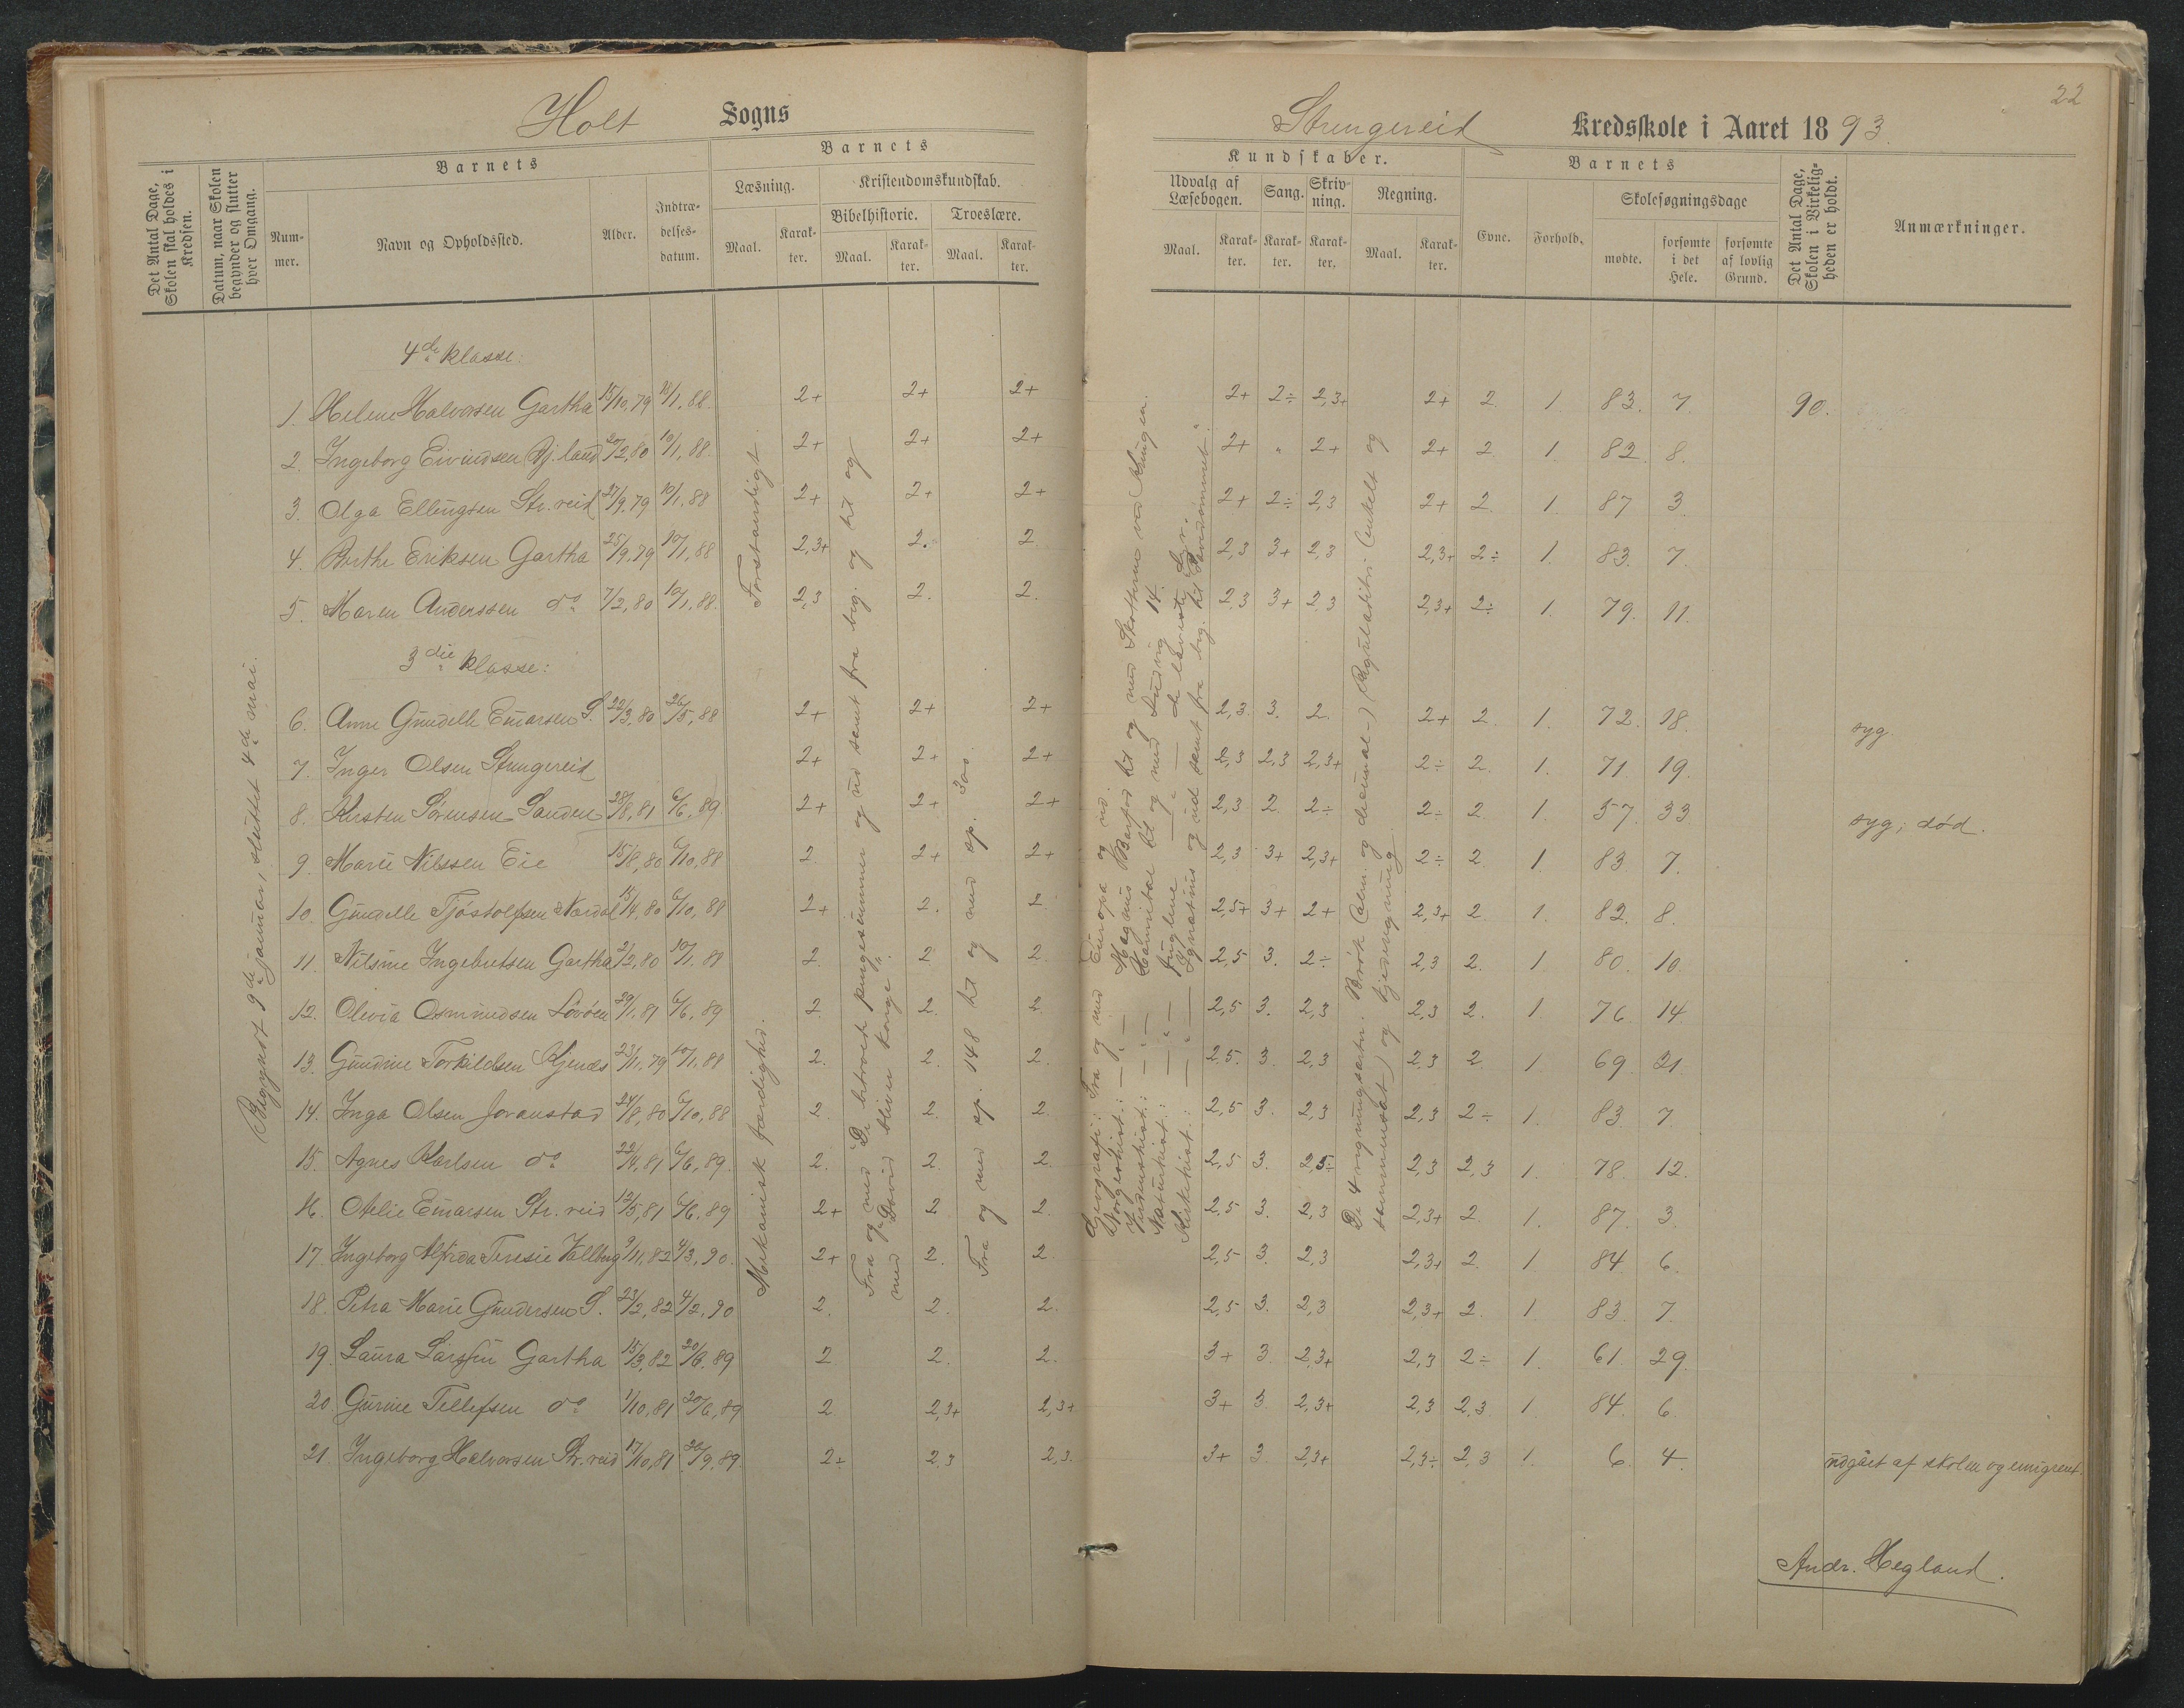 22
Holt Sogns
Strengereid Kredsskole i Aaret 1893.
Det Antal Dage, Skolen skal holdes i Kredsen.
Datum, naar Skolen begynder og slutter hver Omgang.
Barnets
Nummer.
Navn og Opholdssted.
Alder.
Indtrædelsesdatum.
Barnets
Læsning.
Maal.
Karakter.
Kristendomskundskab.
Bibelhistorie.
Maal.
Karakter.
Troeslære.
Maal.
Karakter.
Kundskaber.
Udvalg af Læsebogen.
Maal.
Karakter.
Sang.
Karakter.
Skrivning.
Karakter.
Regning.
Maal.
Karakter.
Barnets
Evne.
Forhold.
Skolesøgningsdage
mødte.
forsømte i det Hele.
forsømte af lovlig Grund.
Det Antal Dage, Skolen i Virkeligheden er holdt.
Anmærkninger.
Begynt 9de januar, sluttet 4de mai.
Mekanisk færdighed. Forstandigt.
Fra og med "De betroede pund" og ud samt fra beg. og til og
med "David bliver konge".
Fra og med sp. 148 til og med sp. 300.
Geografi: Fra og med Europa og ud.
Norgeshist.: — " — Magnus Barfod til og med Skotterne ved Kringen.
Verdenshist.: — " — Hannibal til og med Ludvig 14.
Naturhist.: — " — fuglene — " — de laveste dyr.
Kirkehist.: — " — Ignatius og ud samt fra beg. til
De 4 regningsarter i Brøk (alm. og decimal-) Reguladitri (enkelt og
sammensat) og kjederegning.
4de klasse:
1. Helene Halvorsen Gartha 15/10,79 18/1,88. 2+ 2+ 2+ 2+ 2÷ 2,3+ 2+ 2 1. 83. 7. 90.
2. Ingeborg Eivindsen Bj.land 20/2,80 10/1,88. 2+ 2+ 2+ 2+ " 2+ 2+ 2 1. 82. 8.
3. Olga Ellingsen Str.reid 27/9,79 10/1,88 2+ 2+ 2+ 2+ 2÷ 2,3 2+ 2. 1. 87 3.
4. Berthe Eriksen Gartha 25/9,79 10/1,88 2,3+ 2. 2 2,3 3+ 2,3 2,3+ 2÷ 1. 83. 7.
5. Maren Anderssen do 7/2,80 10/1,88. 2,3 2. 2. 2,3 3+ 2,3 2,3+ 2÷ 1. 79. 11.
3die klasse:
6. Anne Gundelle Einarsen S. 22/3,80 26/5,88 2+ 2+ 2+ 2,3. 3. 2. 2+ 2. 1. 72. 18. syg.
7. Inger Olsen Strengereid 2+ 2+ 2+ 2,3 2,3 2,3+ 2÷ 2. 1. 71. 19.
8. Kirsten Sørensen Sanden 28/8,81 6/6,89. 2+ 2+ 2+ 2,3 2. 2÷ 2÷ 2. 1. 57. 33 syg; død.
9. Marie Nilssen Eie 15/8,80 6/10,88 2. 2+ 2+ 2,3 3+ 2,3+ 2÷ 2 1. 83 7.
10. Gundelle Tjøstolfsen Nærdal 15/4,80 6/10,88 2+ 2. 2. 2,5+ 3+ 2+ 2,3+ 2. 1. 82. 8.
11. Nilsine Ingebretsen Gartha 2/2,80 10/1.88 2. 2 2. 2,5 3. 2÷ 2,3 2. 1. 80. 10.
12. Olevia Osmundsen Løvøen 29/1,81 6/6,89 2. 2. 2. 2,5 3. 2,3 2,3 2. 1. 76. 14.
13. Gundine Torkildsen Kjenes 23/11,79 10/1,88 2. 2. 2. 2,5. 3. 2,3 2,3 2. 1. 69. 21.
14. Inga Olsen Goranstad 24/8,80 6/10,88 2. 2. 2 2,5 3. 2,3 2,3 2÷ 1. 83. 7.
15. Agnes Karlsen do 22/4,81 6/6,89. 2. 2. 2. 2,5 3. 2,5÷ 2,3 2,3 1. 78. 12.
16. Atelie Einarsen Str.reid 12/5,81 6/6,89 2+ 2. 2. 2,5 3. 2,3 2,3+ 2. 1. 87. 3.
17. Ingeborg Alfrida Teresie Vallberg 9/11,82 4/3,90. 2+ 2. 2. 2,5 3. 2,3 2,3+ 2. 1. 84 6.
18. Petra Marie Gundersen S. 23/2,82 4/2,90 2. 2. 2. 2,5 3. 2,3 2,3+ 2. 1 83. 7.
19. Laura Larssen Gartha 15/3,82 20/6,89 2. 2. 2. 3+ 3. 2,3+ 2,3 2÷ 1. 61. 29.
20. Gurine Tellefsen do 1/10,81 20/6,89 2 2,3+ 2,3+ 3+ 3. 2,3+ 2,3 2,3 1. 84. 6.
21. Ingeborg Halvorsen Str.reid 17/10,81 20/9.89. 2÷ 2,3 2,3. 3+ 3. 2,3+ 2,3÷ 2,3 1. 6. 4. udgået af skolen og emigrert.
Andr. Hegland.